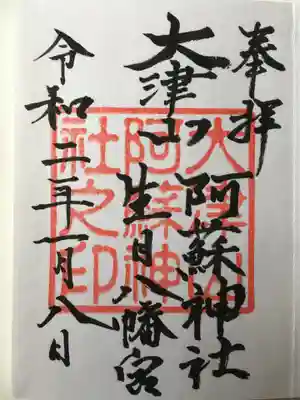 奉拝
大津山
阿蘇神社
生目八幡宮
令和二年一月八日
大津山
阿蘇神
社之印